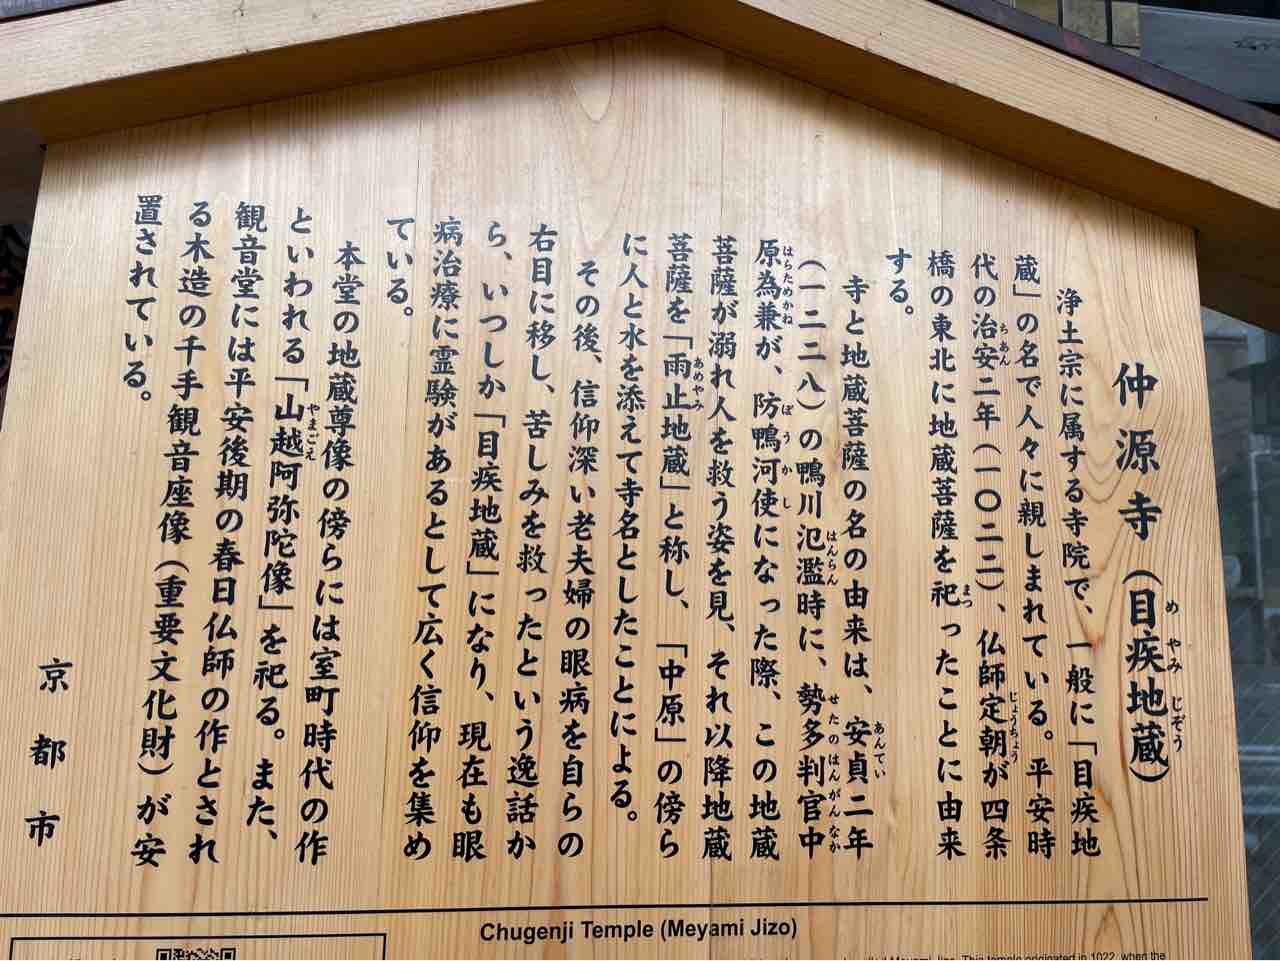 仲源寺（目疾地蔵）
めやみじぞう
浄土宗に属する寺院で、一般に「目疾地
蔵」の名で人々に親しまれている。平安時
代の治安二年（一〇二二）、仏師定朝が四条
ちあん
じょうちょう
橋の東北に地蔵菩薩を祀ったことに由来
まつ
する。
寺と地蔵菩薩の名の由来は、安貞二年
あんてい
（一二二八）の鴨川氾濫時に、勢多判官中
はんらん
せたのはんがんなか
原為兼が、防鴨河使になった際、この地蔵
はらためかね
ぼうかし
菩薩が溺れ人を救う姿を見、それ以降地蔵
菩薩を「雨止地蔵」と称し、「中原」の傍ら
あめやみ
に人と水を添えて寺名としたことによる。
その後、信仰深い老夫婦の眼病を自らの
右目に移し、苦しみを救ったという逸話か
ら、いつしか「目疾地蔵」になり、現在も眼
病治療に霊験があるとして広く信仰を集め
ている。
本堂の地蔵尊像の傍らには室町時代の作
といわれる「山越阿弥陀像」を祀る。また、
やまごえ
観音堂には平安後期の春日仏師の作とされ
る木造の千手観音座像（重要文化財）が安
置されている。
京都市
Chugenji Temple (Meyami Jizo)
Meyami Jizo. This temple originated in 1022, when the